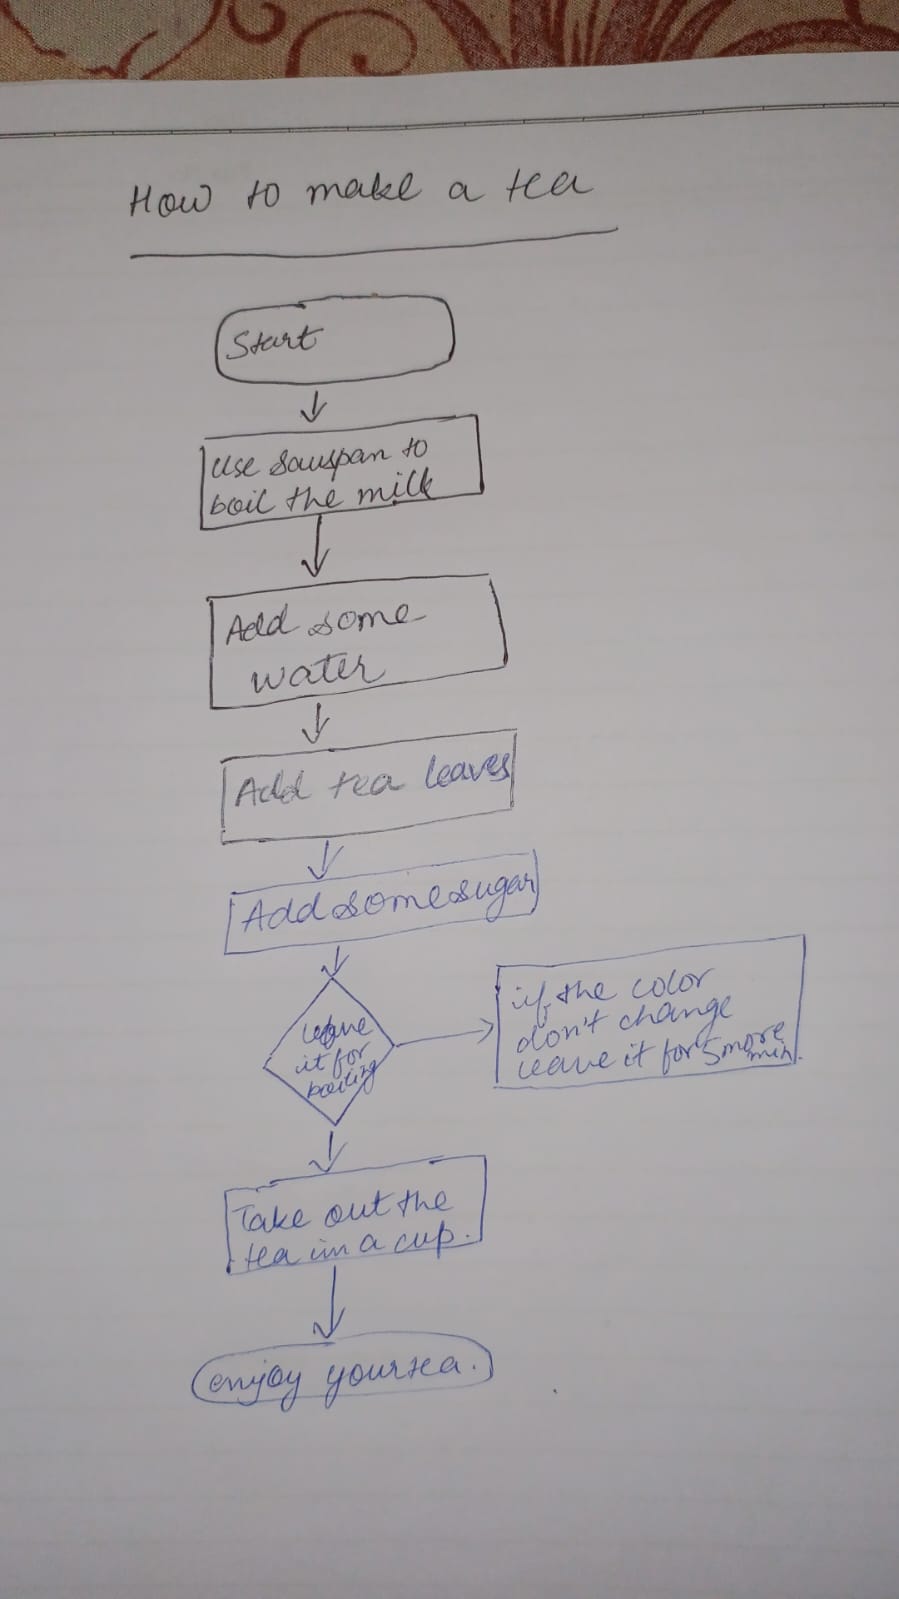 How to make a tea
Start
Use sauspan to
boil the milk
Add some
water
Add tea leaves
Add some sugar
leave
it for
boiling
if the color
don't change
leave it for 5 more
min.
Take out the
tea in a cup.
enjoy your tea.